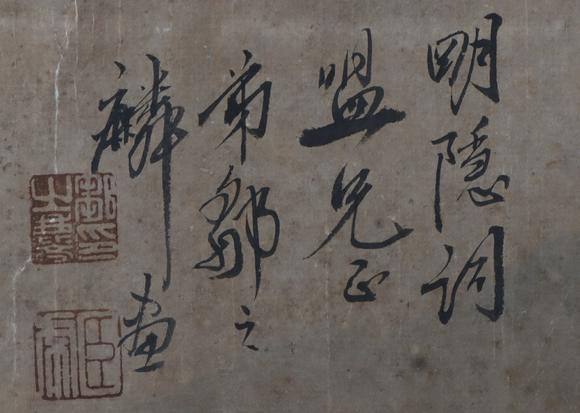 明隱詞
盟兄正
弟鄒之
麟画